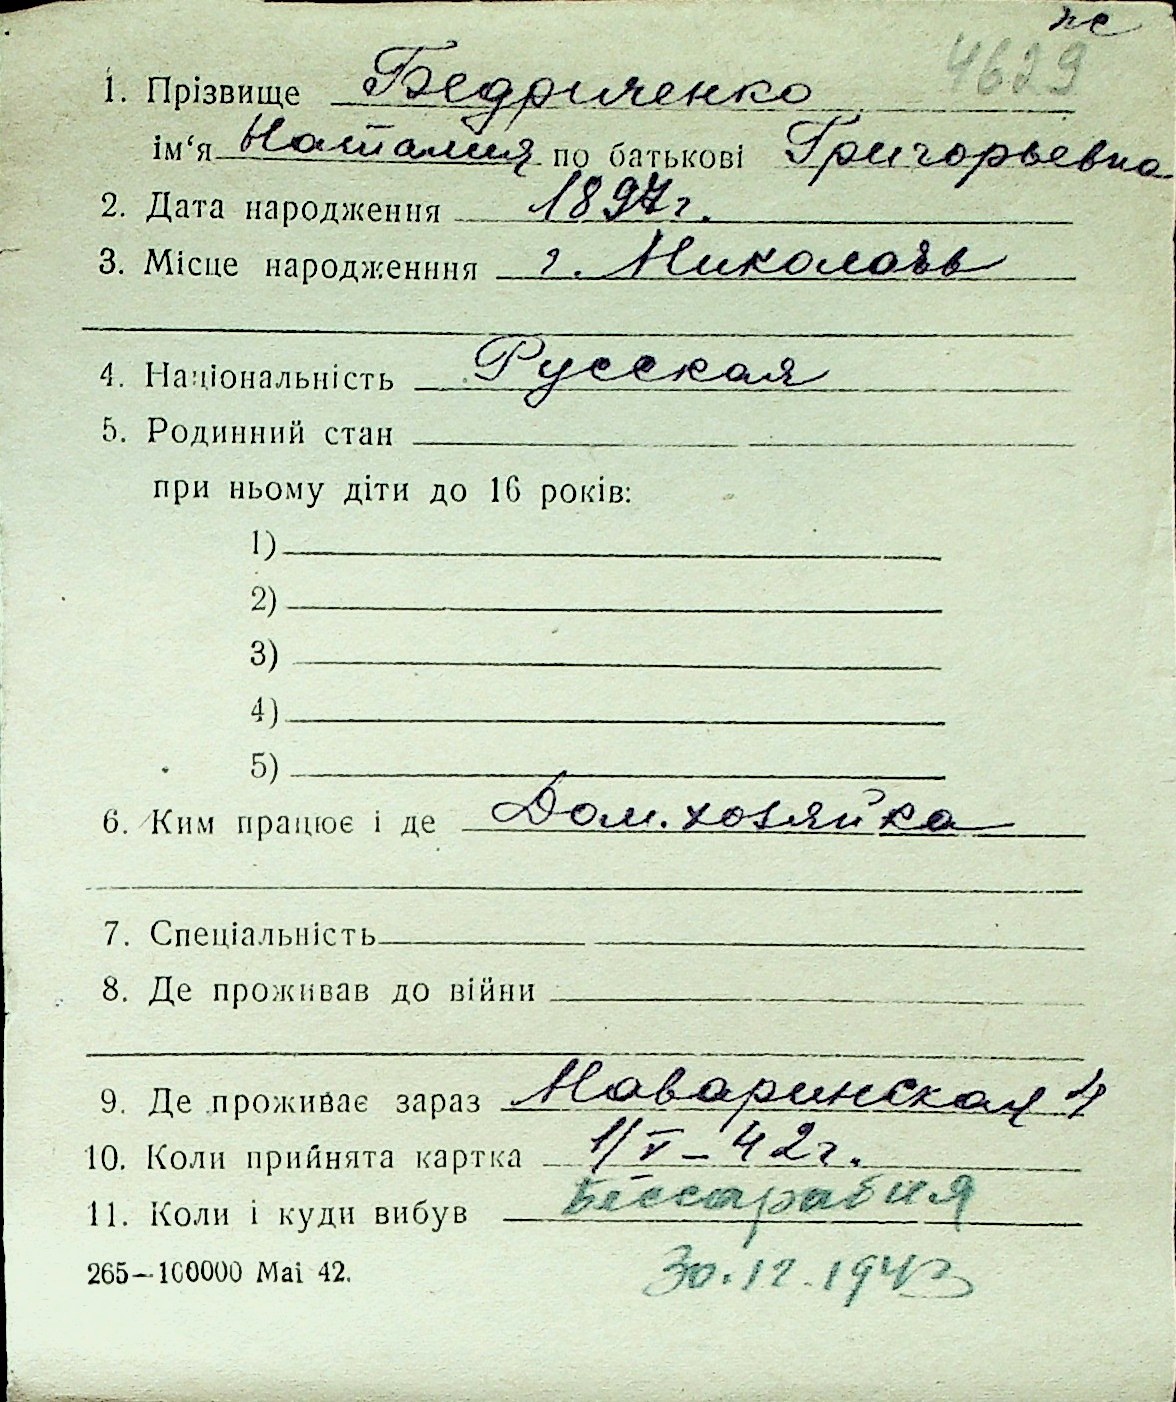 пс
4629
1. Прізвище Бедриченко
ім‘я Наталия по батькові Григорьевна
2. Дата народження 1897г.
3. Місце народженння г. Николаевь
4. Національність Русская
5. Родинний стан
при ньому діти до 16 років:
1)
2)
3)
4)
5)
6. Ким працює і де Дом. хозяйка
7. Спеціальність
8. Де проживав до війни
9. Де проживає зараз Наваринская 4
10. Коли прийнята картка 1/V – 42г.
11. Коли і куди вибув Бессарабия
265—100000 Mai 42. 30.12.1943